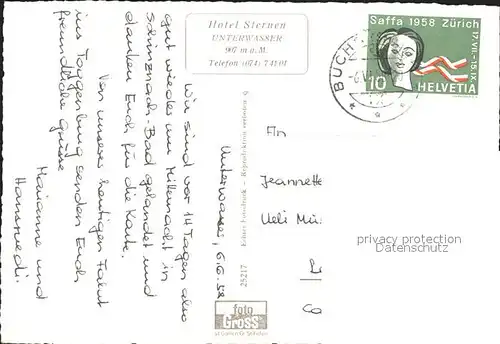 Hotel Sternen
UNTERWASSER
907 m ü. M.
Telefon (074) 7 41 01
Saffa 1958 Zürich
17.VII.-15.IX.
10
HELVETIA
BUCH
Unterwasser, 6.6.58
Wir sind vor 14 Tagen also
gut wieder um Mitternacht in
Schinznach-Bad gelandet und
danken Euch für die Karte.
Von unserer heutigen Fahrt
ins Toggenburg senden Euch
freundliche Grüsse
Marianne und
Hansruedi.
An
Jeannette
Ueli Mü
privacy protection
Datenschutz
Reproduktion verboten
25217
foto
GROSS
St. Gallen